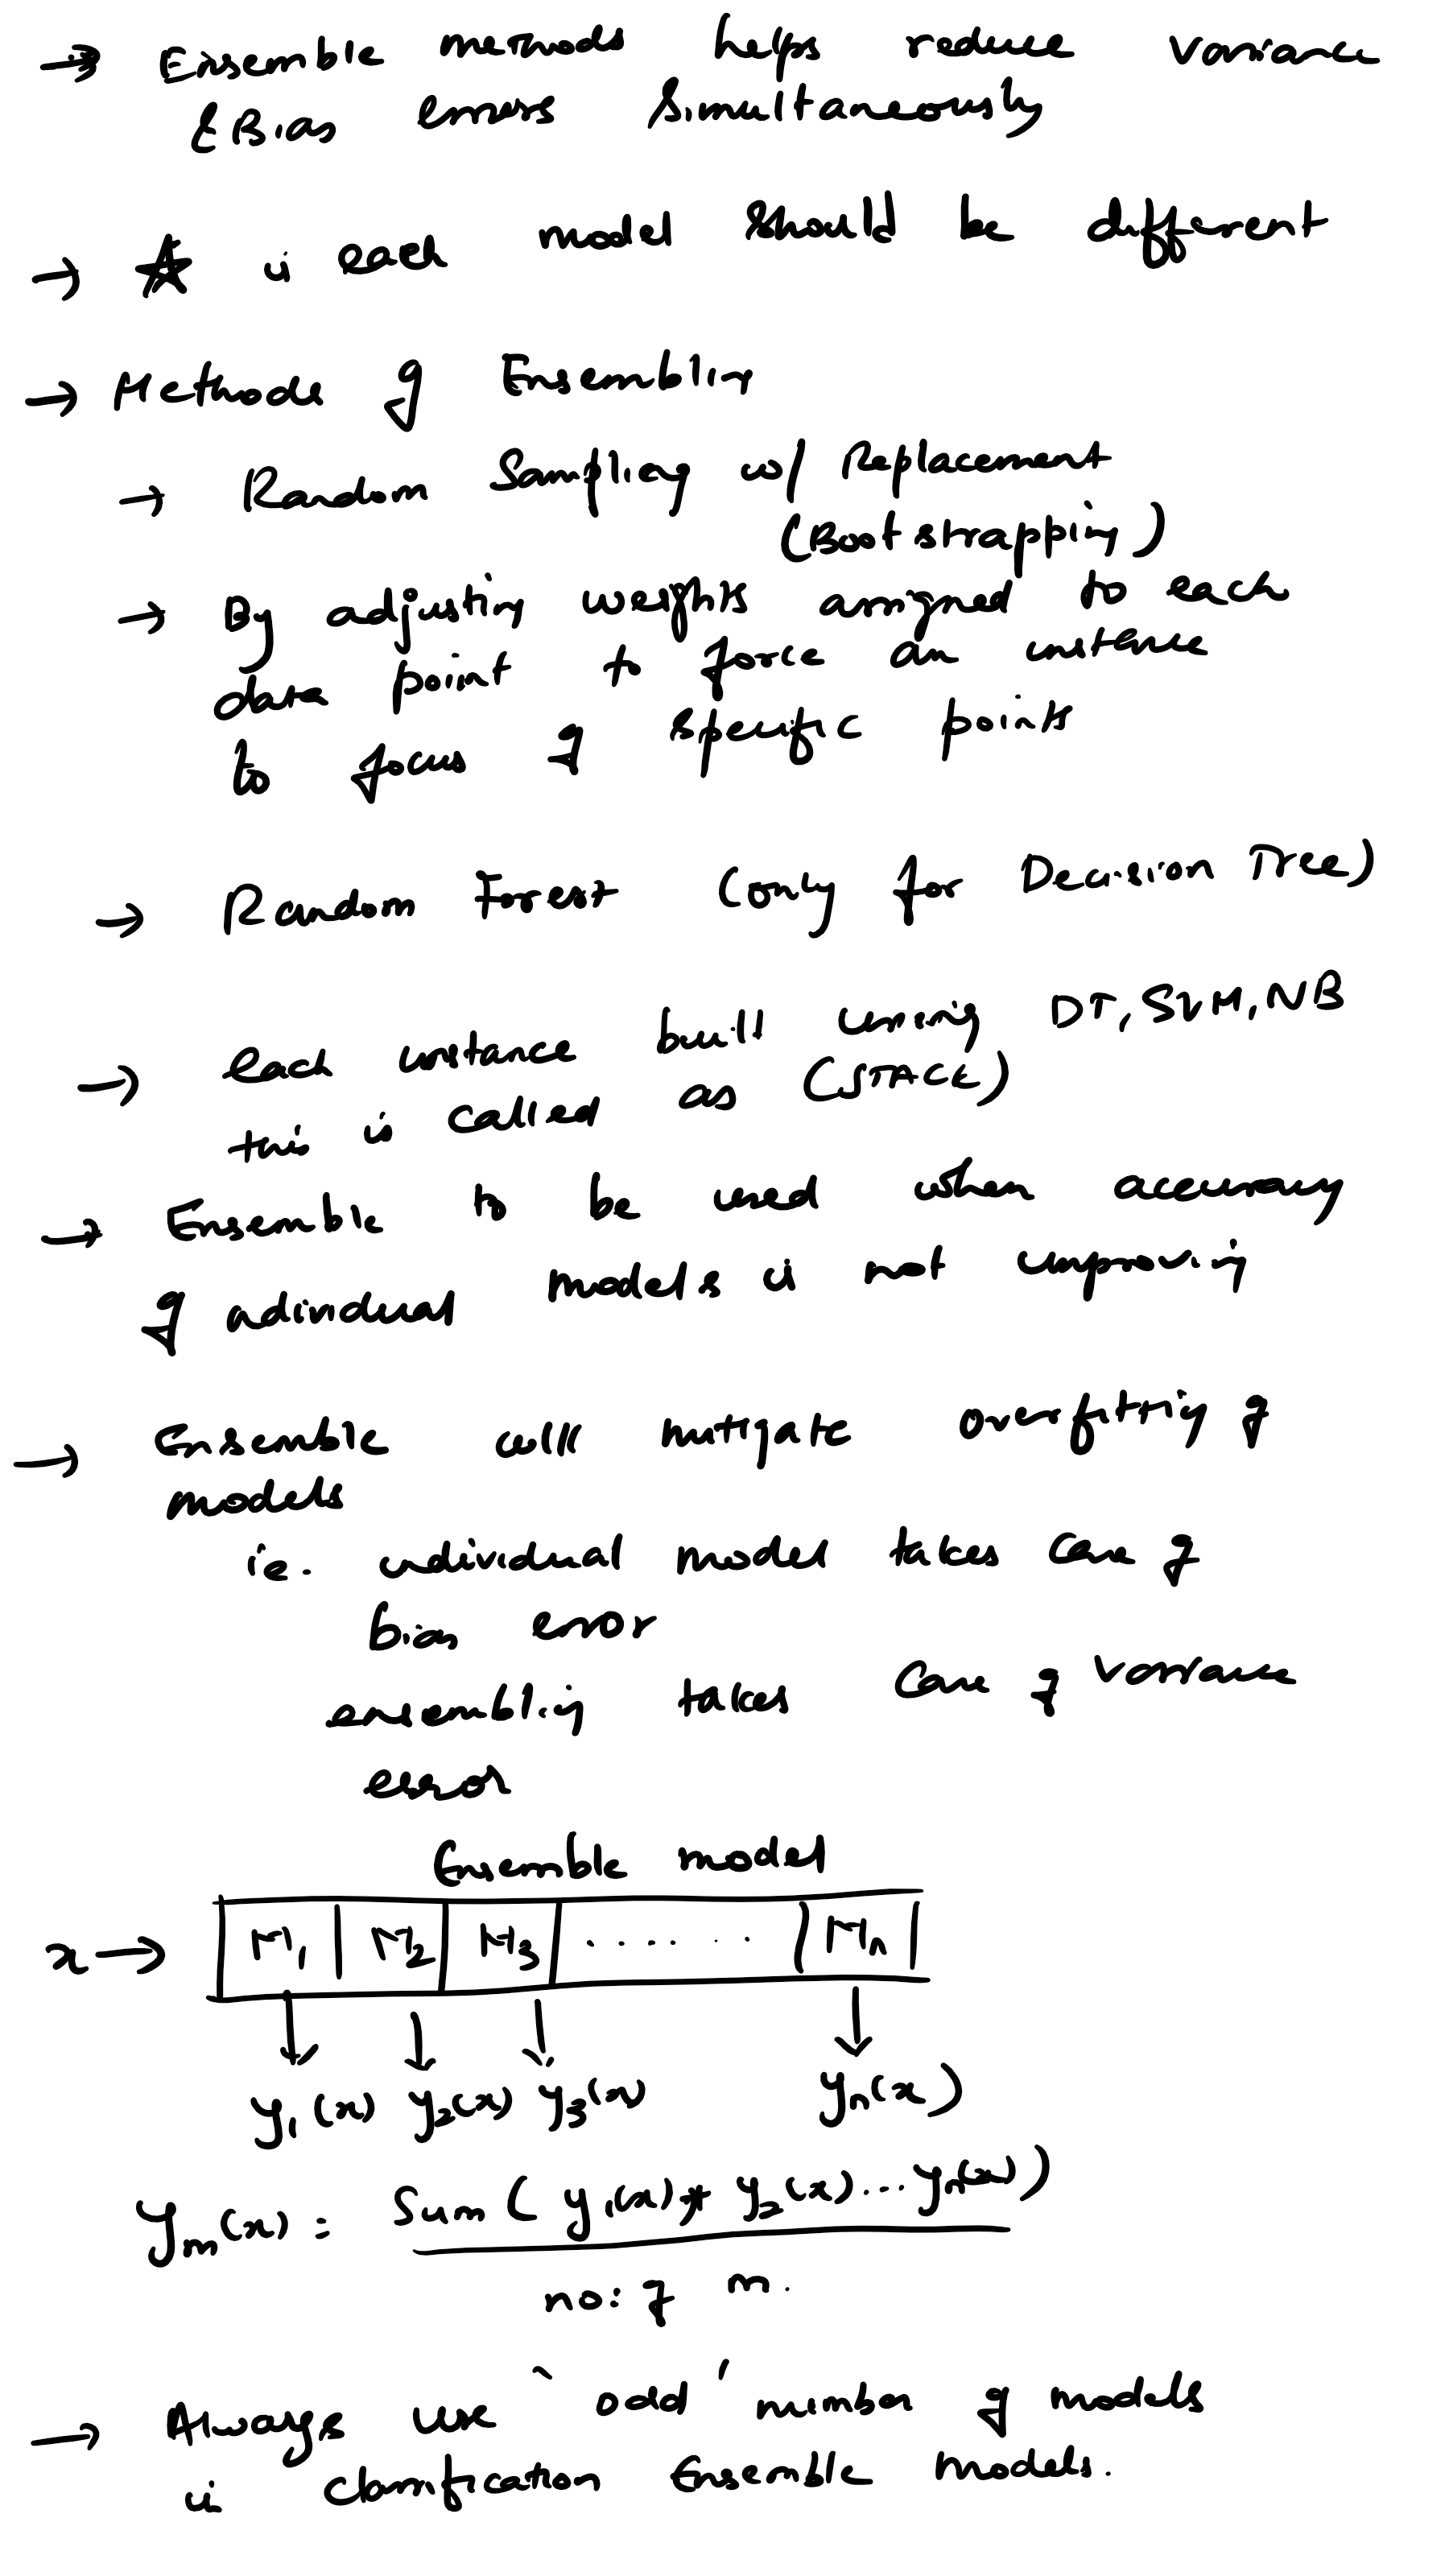 → Ensemble methods helps reduce variance
& Bias errors simultaneously
→ ☆ is each model should be different
→ Methods of Ensembling
→ Random Sampling w/ Replacement
(Bootstrapping)
→ By adjusting weights assigned to each
data point to force an instance
to focus of specific points
→ Random Forest (only for Decision Tree)
→ each instance built using DT, SVM, NB
this is called as (STACK)
→ Ensemble to be used when accuracy
of individual models is not improving
→ Ensemble will mitigate overfitting of
models
ie. individual model takes care of
bias error
ensembling takes care of variance
error
Ensemble model
x → M1 | M2 | M3 | ...... | Mn
y1(x) y2(x) y3(x) yn(x)
ym(x) = Sum( y1(x) + y2(x)...yn(x))
no: of m.
→ Always use `odd' number of models
in classification Ensemble models.